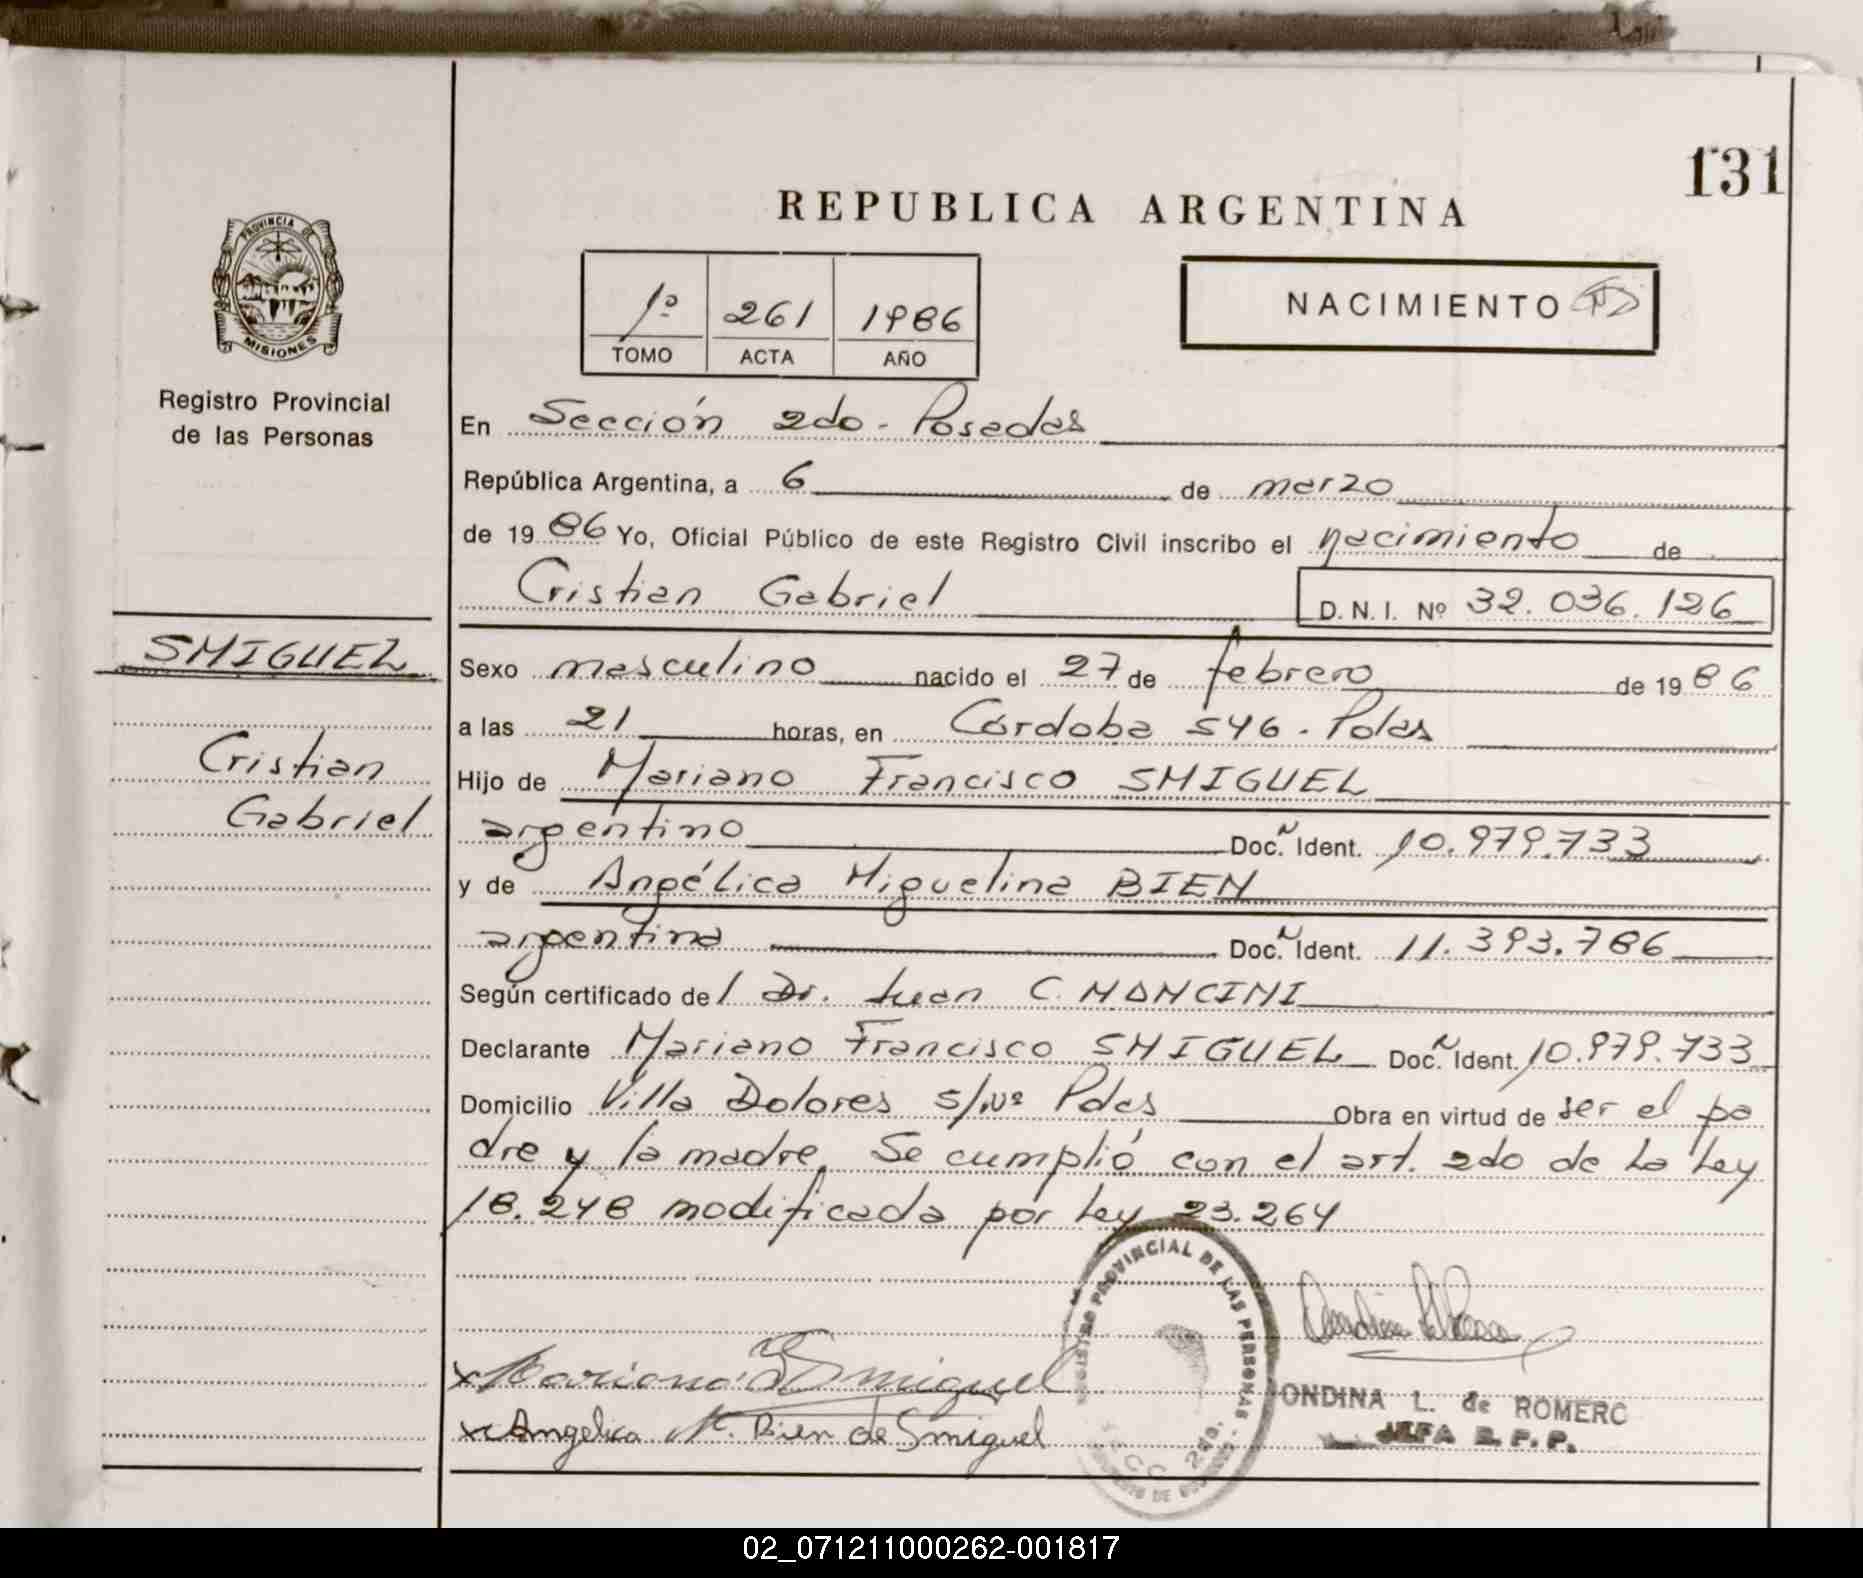 131
REPUBLICA ARGENTINA
PROVINCIA DE
MISIONES
1º 261 1986
TOMO ACTA AÑO
NACIMIENTO
Registro Provincial
de las Personas
En Sección 2do - Posadas
República Argentina, a 6 de marzo
de 1986 Yo, Oficial Público de este Registro Civil inscribo el nacimiento de
Cristian Gabriel D.N.I. Nº 32.036.126
SMIGUEL
Cristian
Gabriel
Sexo masculino nacido el 27 de febrero de 1986
a las 21 horas, en Córdoba 546 - Pdas
Hijo de Mariano Francisco SMIGUEL
argentino Doc. Ident. 10.979.733
y de Angélica Miguelina BIEN
argentina Doc. Ident. 11.393.786
Según certificado del Dr. Juan C. MANCINI
Declarante Mariano Francisco SMIGUEL Doc. Ident. 10.979.733
Domicilio Villa Dolores s/Nº Pdas Obra en virtud de ser el pa
dre y la madre. Se cumplió con el art. 2do de la Ley
18.248 modificada por Ley 23.264
REGISTRO PROVINCIAL DE LAS PERSONAS
SECC. 2da.
x Mariano F Smiguel
x Angelica M. Bien de Smiguel
ONDINA L. de ROMERO
JEFA R.P.P.
02_071211000262-001817